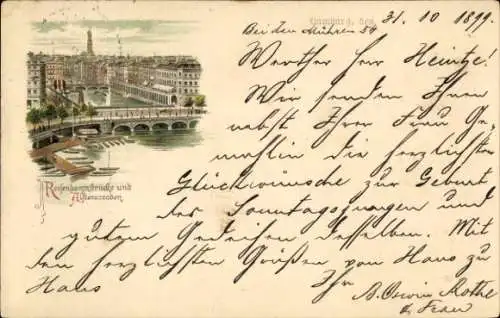 Hamburg, den 31. 10 1899
Bei den Mühren 54
Werther Herr Heintze!
Wir senden Ihnen
nebst Ihrer Frau Ge-
mahlin die herzlichsten
Glückwünsche zur Geburt
des Sonntagsjungen und
gutem Gedeihen desselben. Mit
den herzlichsten Grüßen von Haus zu
Haus Ihr
A. Oswin Rothe
& Frau
Reesendammbrücke und
Alsterarcaden.